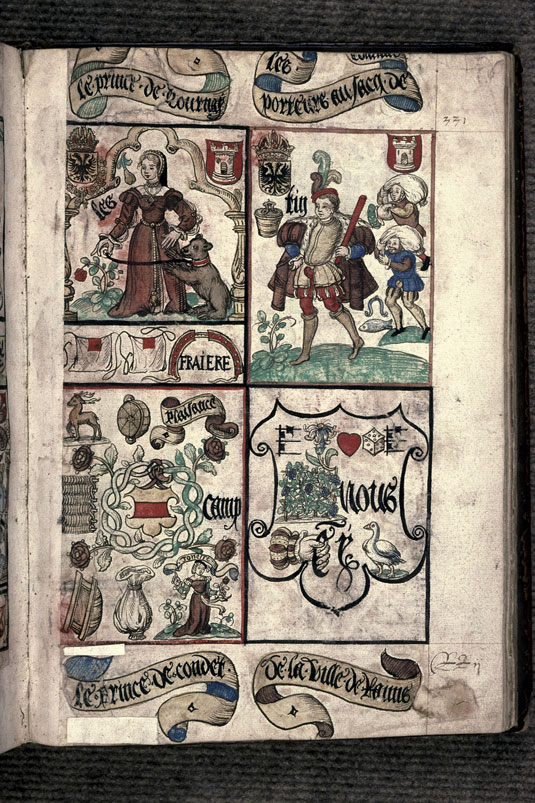 les
le prince de tournay
porteurs au sacq de
les
tin
FRAIERE
plaisance
camp
nous
le prince de condet
de la ville de